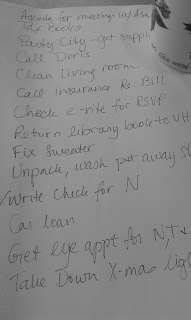 Agenda for meeting w/ Asa
Tax Books
Party City - get suppl
Call Doris
Clean living room
Call insurance Re: Bill
Check e-vite for RSVP
Return library book to VH
Fix sweater
Unpack, wash put away
✓Write Check for N
Car loan
Get eye appt for N, T +
Take Down X-mas lig